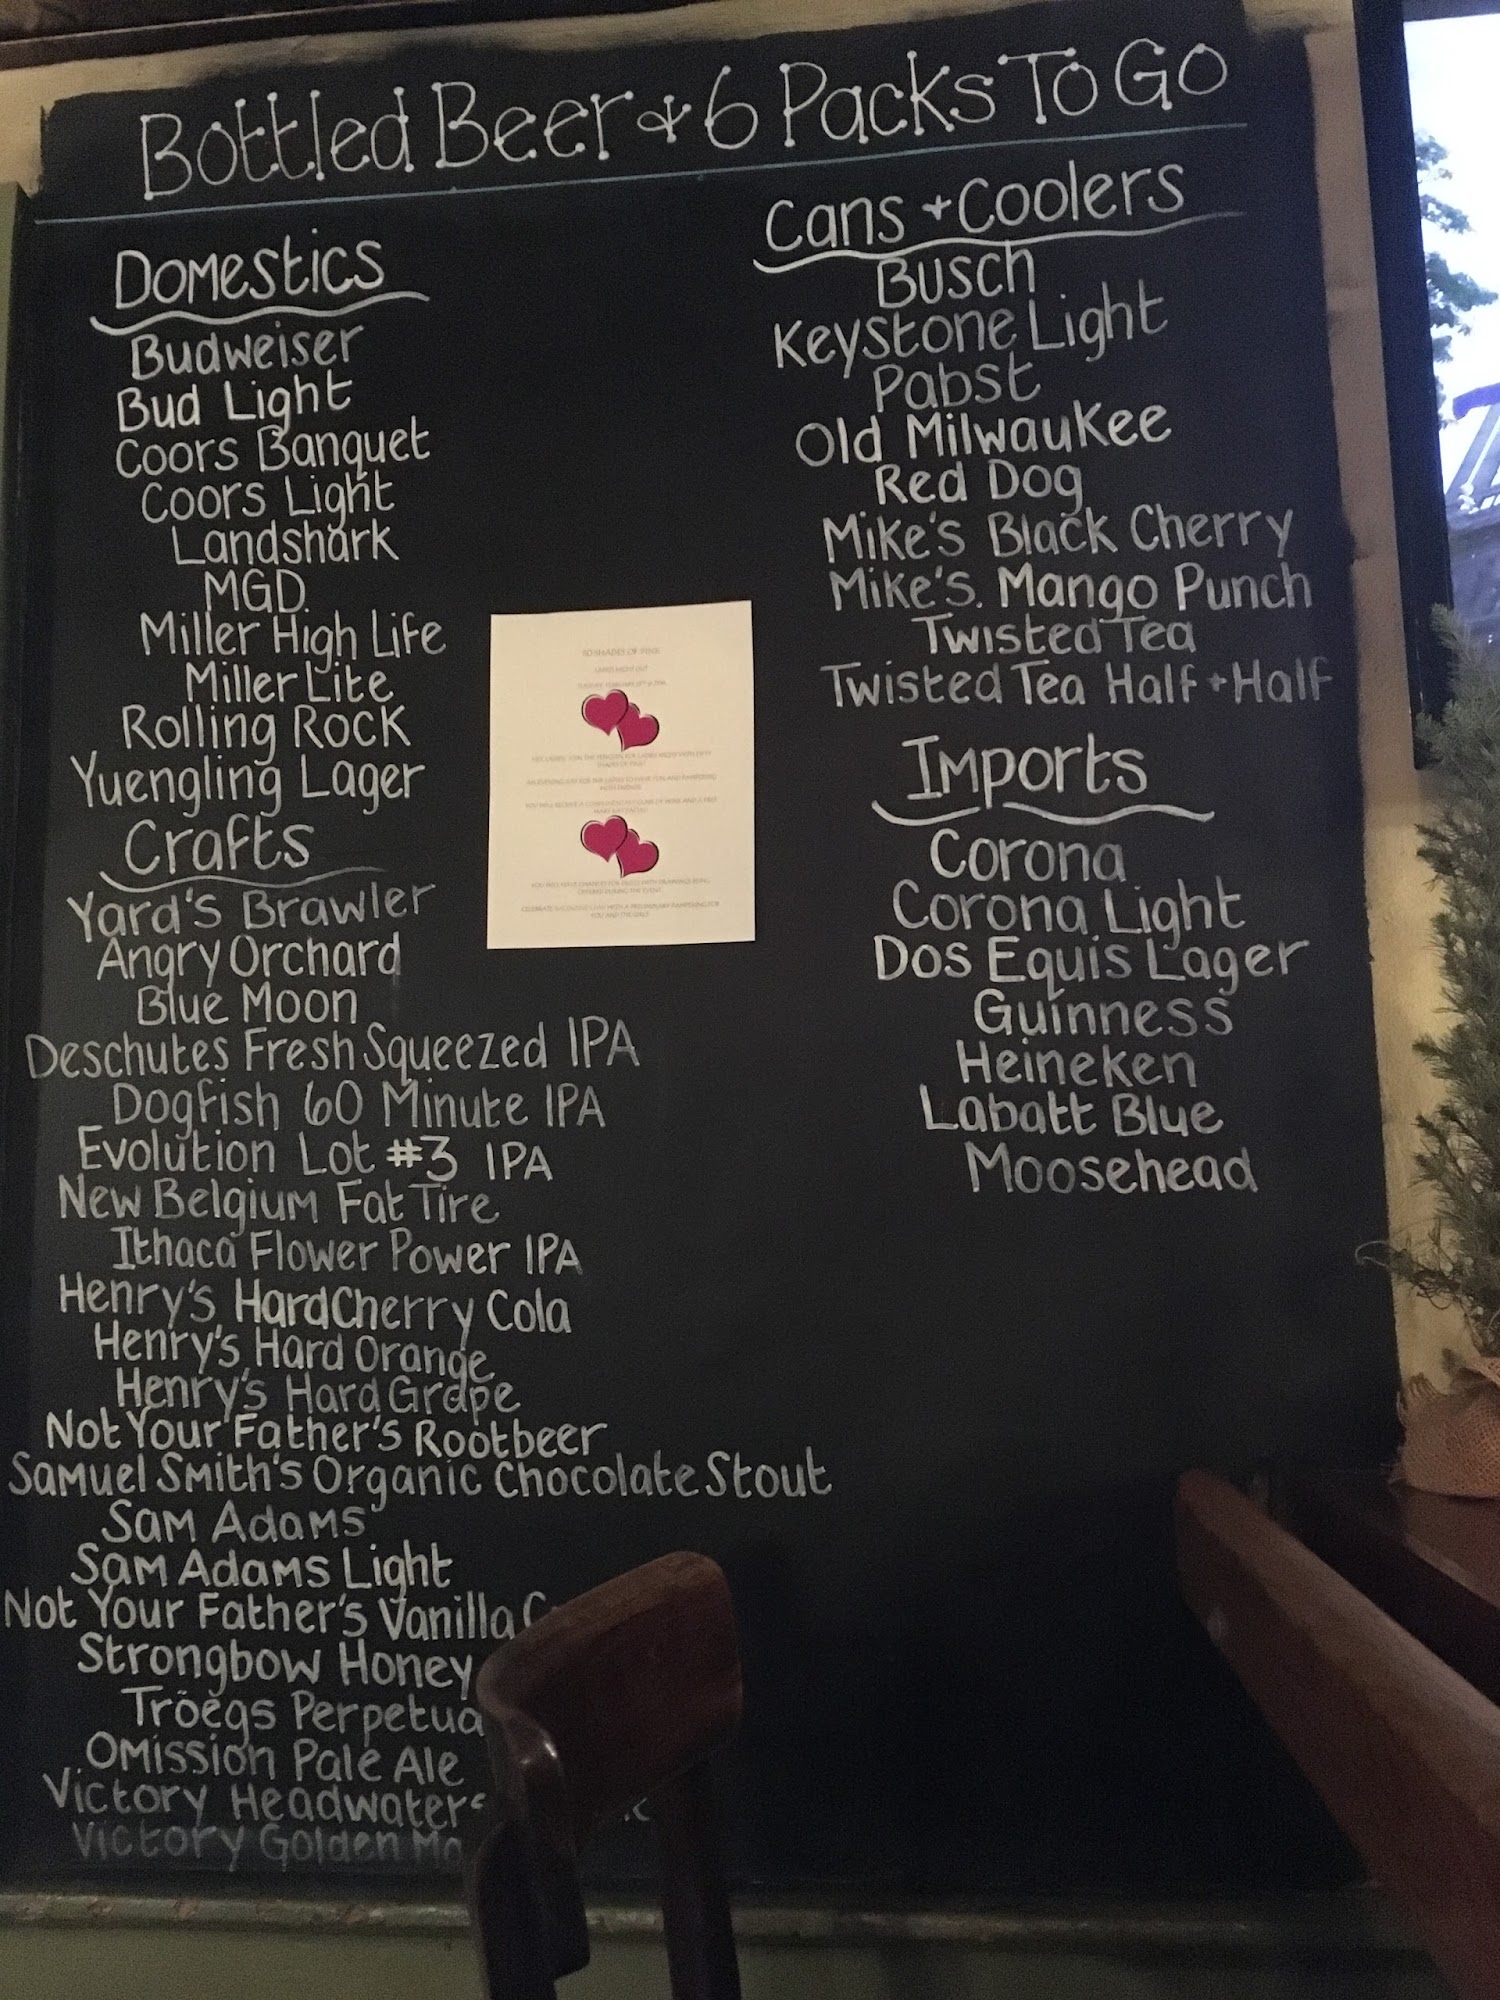 Bottled Beer & 6 Packs To Go
Domestics
Budweiser
Bud Light
Coors Banquet
Coors Light
Landshark
MGD
Miller High Life
Miller Lite
Rolling Rock
Yuengling Lager
Crafts
Yard's Brawler
Angry Orchard
Blue Moon
Deschutes Fresh Squeezed IPA
Dogfish 60 Minute IPA
Evolution Lot #3 IPA
New Belgium Fat Tire
Ithaca Flower Power IPA
Henry's Hard Cherry Cola
Henry's Hard Orange
Henry's Hard Grape
Not Your Father's Rootbeer
Samuel Smith's Organic Chocolate Stout
Sam Adams
Sam Adams Light
Not Your Father's Vanilla
Strongbow Honey
Tröegs
Omission Pale Ale
Victory
Victory Golden
Cans + Coolers
Busch
Keystone Light
Pabst
Old Milwaukee
Red Dog
Mike's Black Cherry
Mike's Mango Punch
Twisted Tea
Twisted Tea Half + Half
Imports
Corona
Corona Light
Dos Equis Lager
Guinness
Heineken
Labatt Blue
Moosehead
50 SHADES OF PINK
LADIES NIGHT OUT